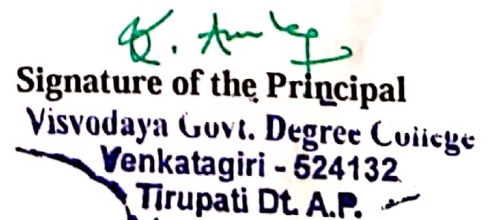 Signature of the Principal
Visvodaya Govt. Degree College
Venkatagiri - 524132
Tirupati Dt. A.P.